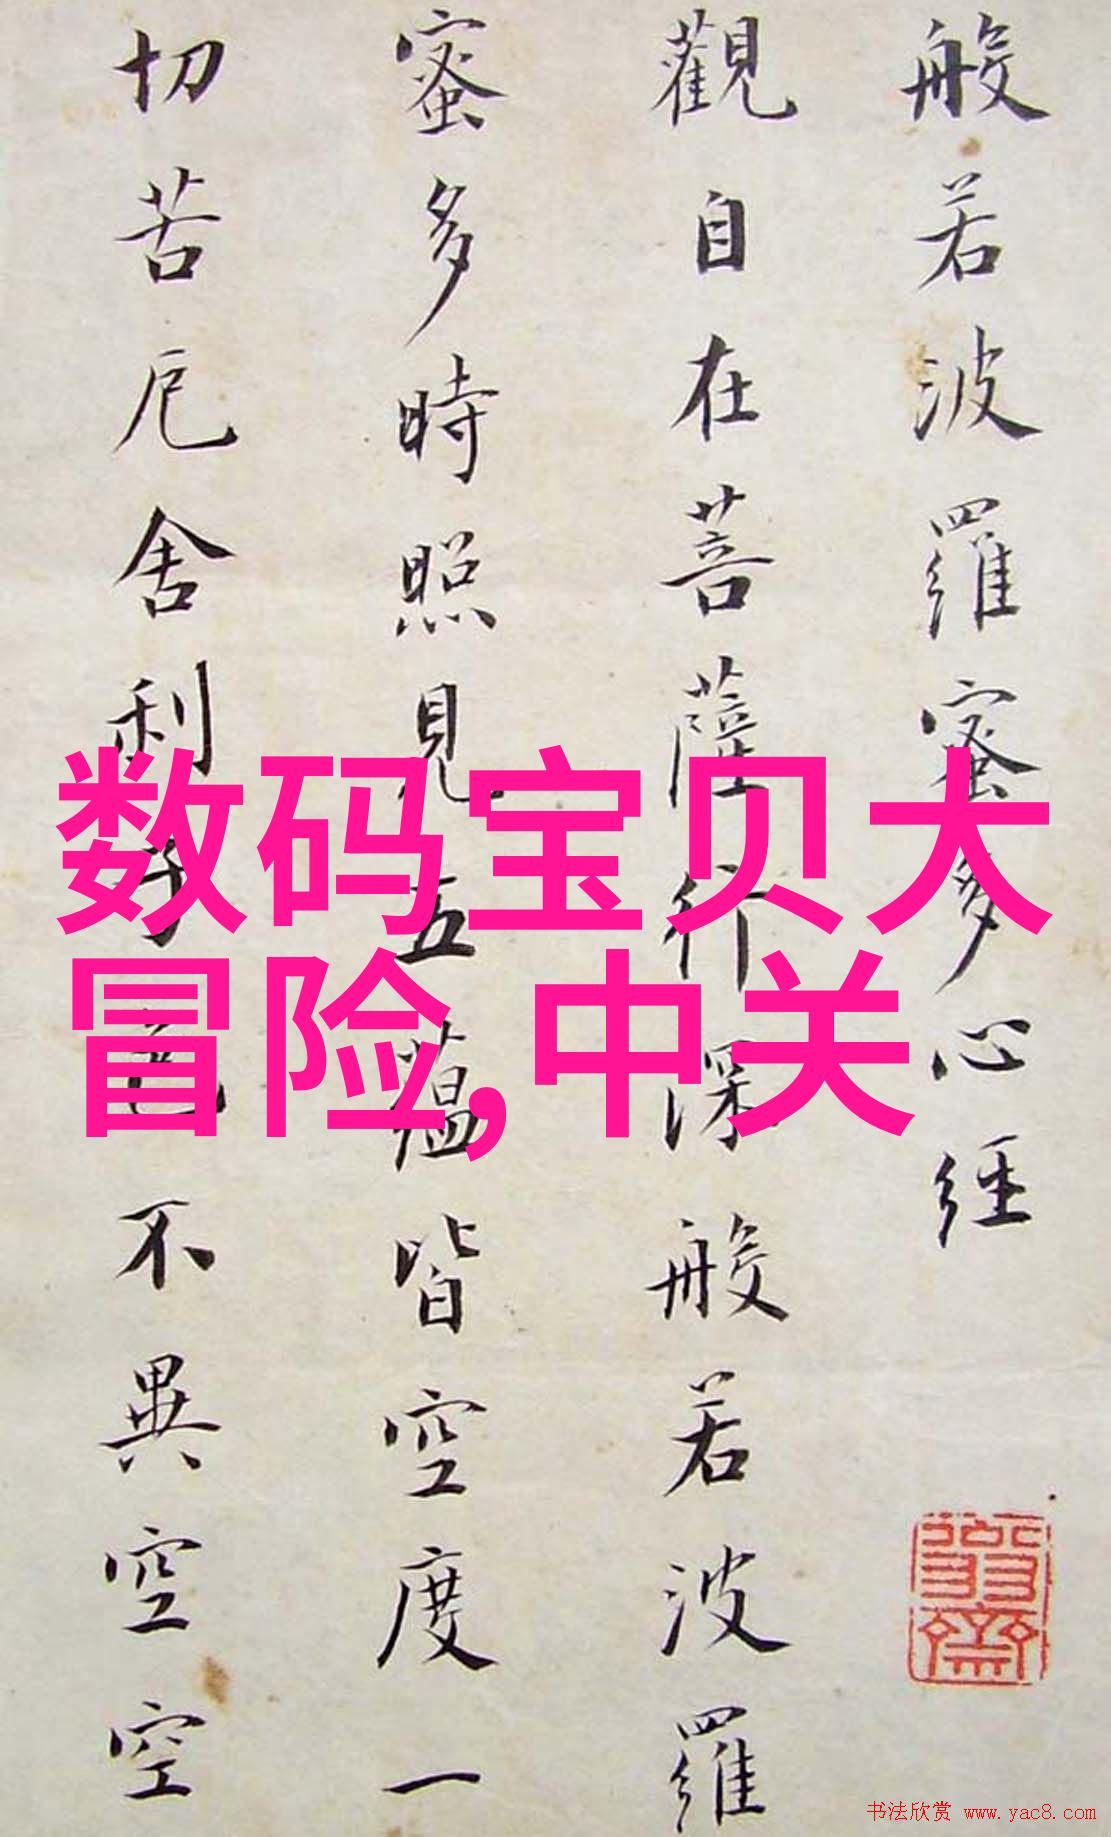 般若波羅蜜多心経
觀自在菩薩行深般若波羅
蜜多時照見五蘊皆空度一
切苦厄舍利子色不異空空
数码宝贝大
冒险,中关
书法欣赏 www.yac8.com